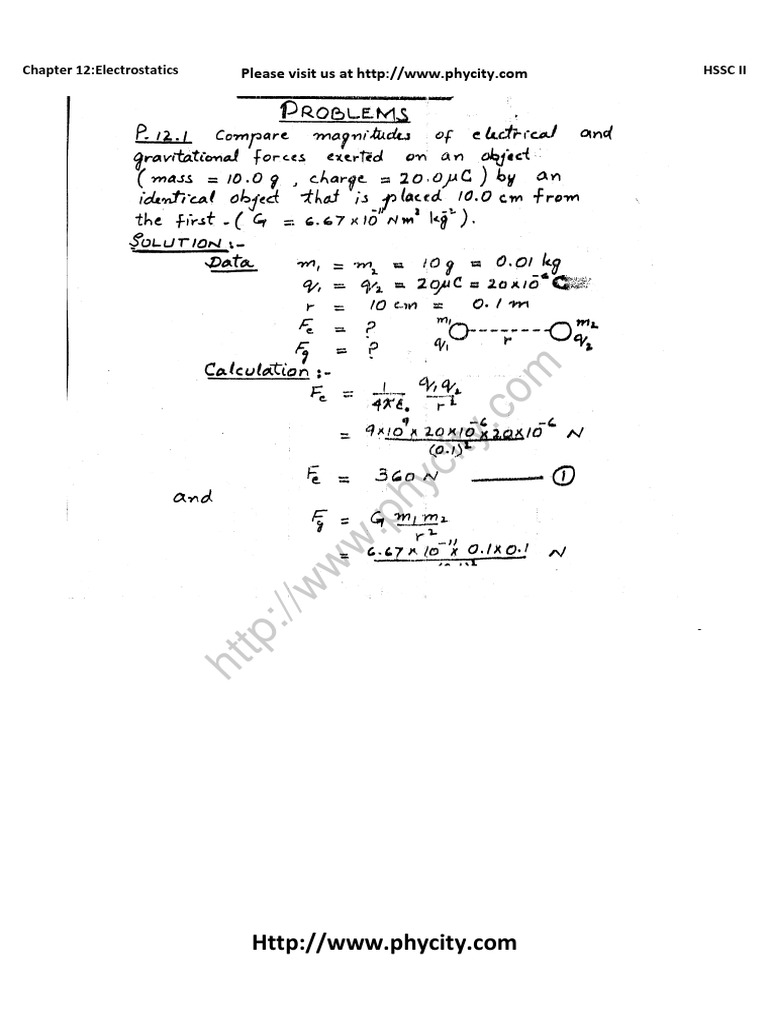 Chapter 12:Electrostatics Please visit us at http://www.phycity.com HSSC II
PROBLEMS
P.12.1 Compare magnitudes of electrical and
gravitational forces exerted on an object
(mass = 10.0 g , charge = 20.0 μC) by an
identical object that is placed 10.0 cm from
the first.(G = 6.67×10⁻¹¹ Nm² kg⁻²).
SOLUTION :-
Data m₁ = m₂ = 10 g = 0.01 kg
q₁ = q₂ = 20μC = 20×10⁻⁶ C
r = 10 cm = 0.1 m
Fe = ?
Fg = ?
m₁ m₂
q₁ r q₂
Calculation :-
Fe = 1/4πε₀ q₁q₂/r²
= 9×10⁹ × 20×10⁻⁶ × 20×10⁻⁶ / (0.1)² N
Fe = 360 N ——— ①
and
Fg = G m₁m₂/r²
= 6.67×10⁻¹¹ × 0.1×0.1 N
http://www.phycity.com
Http://www.phycity.com